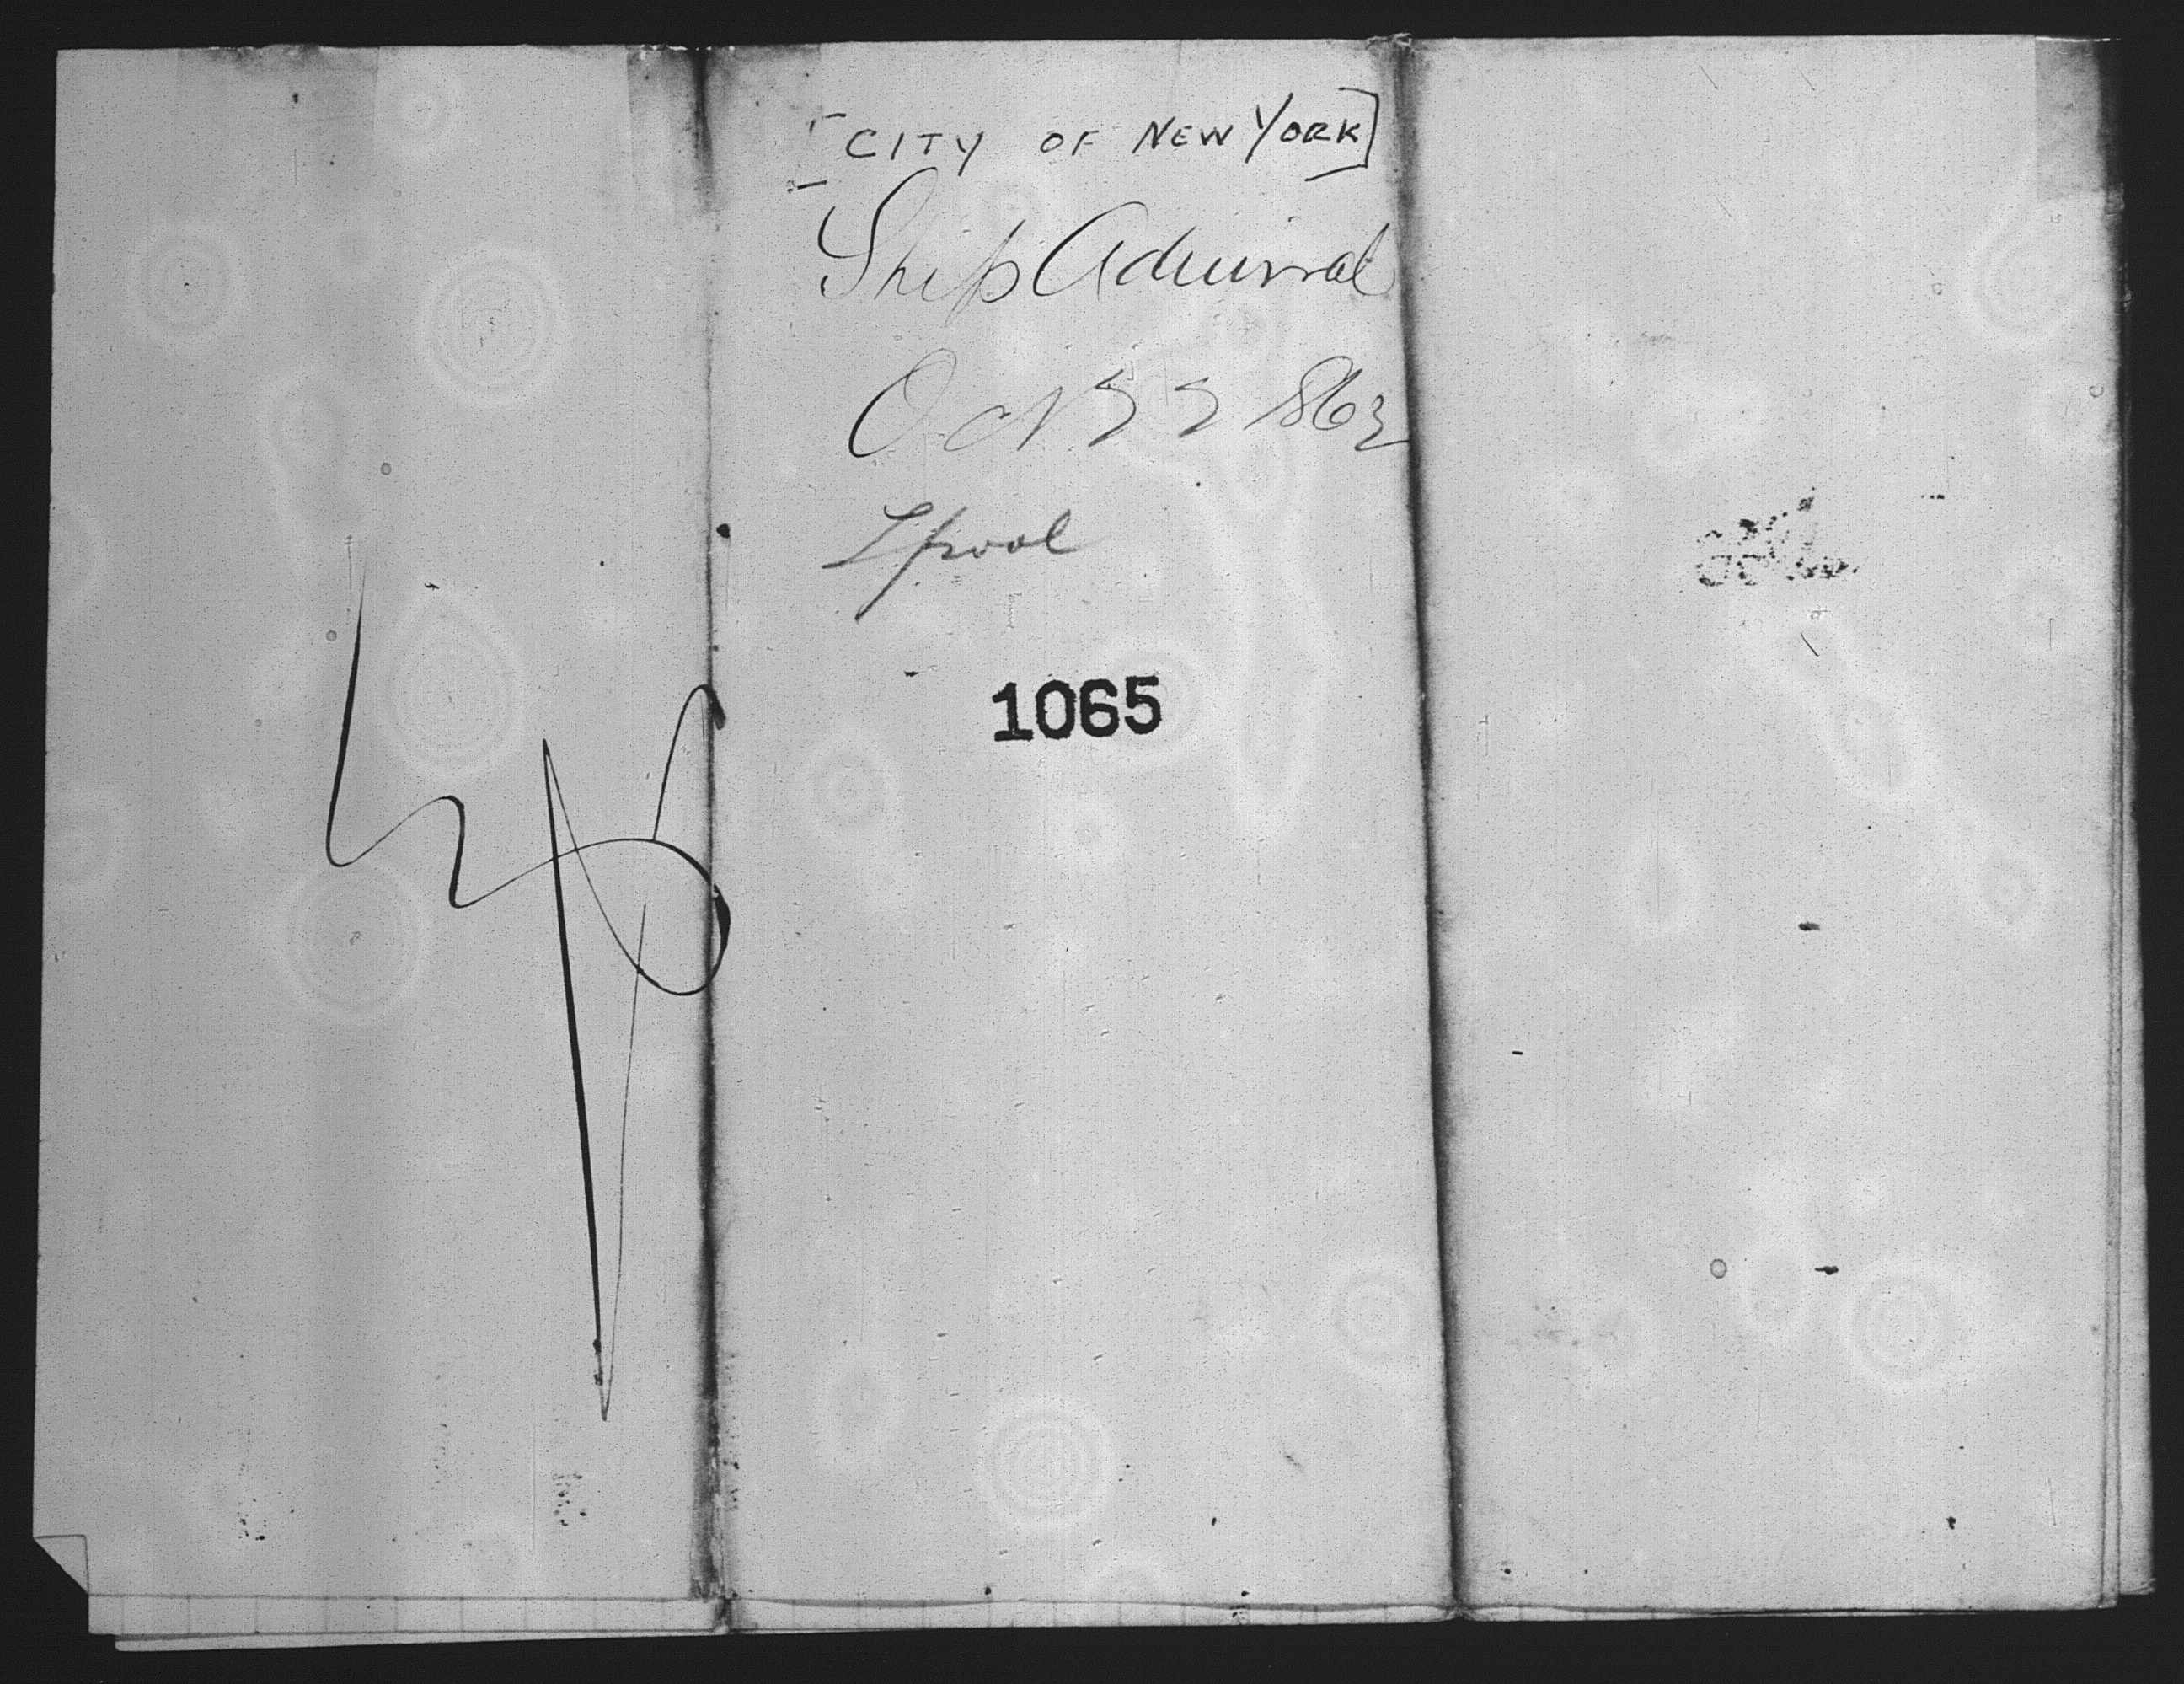 [CITY OF NEW YORK]
Ship Admiral
Oct 22 1863
Lpool
1065